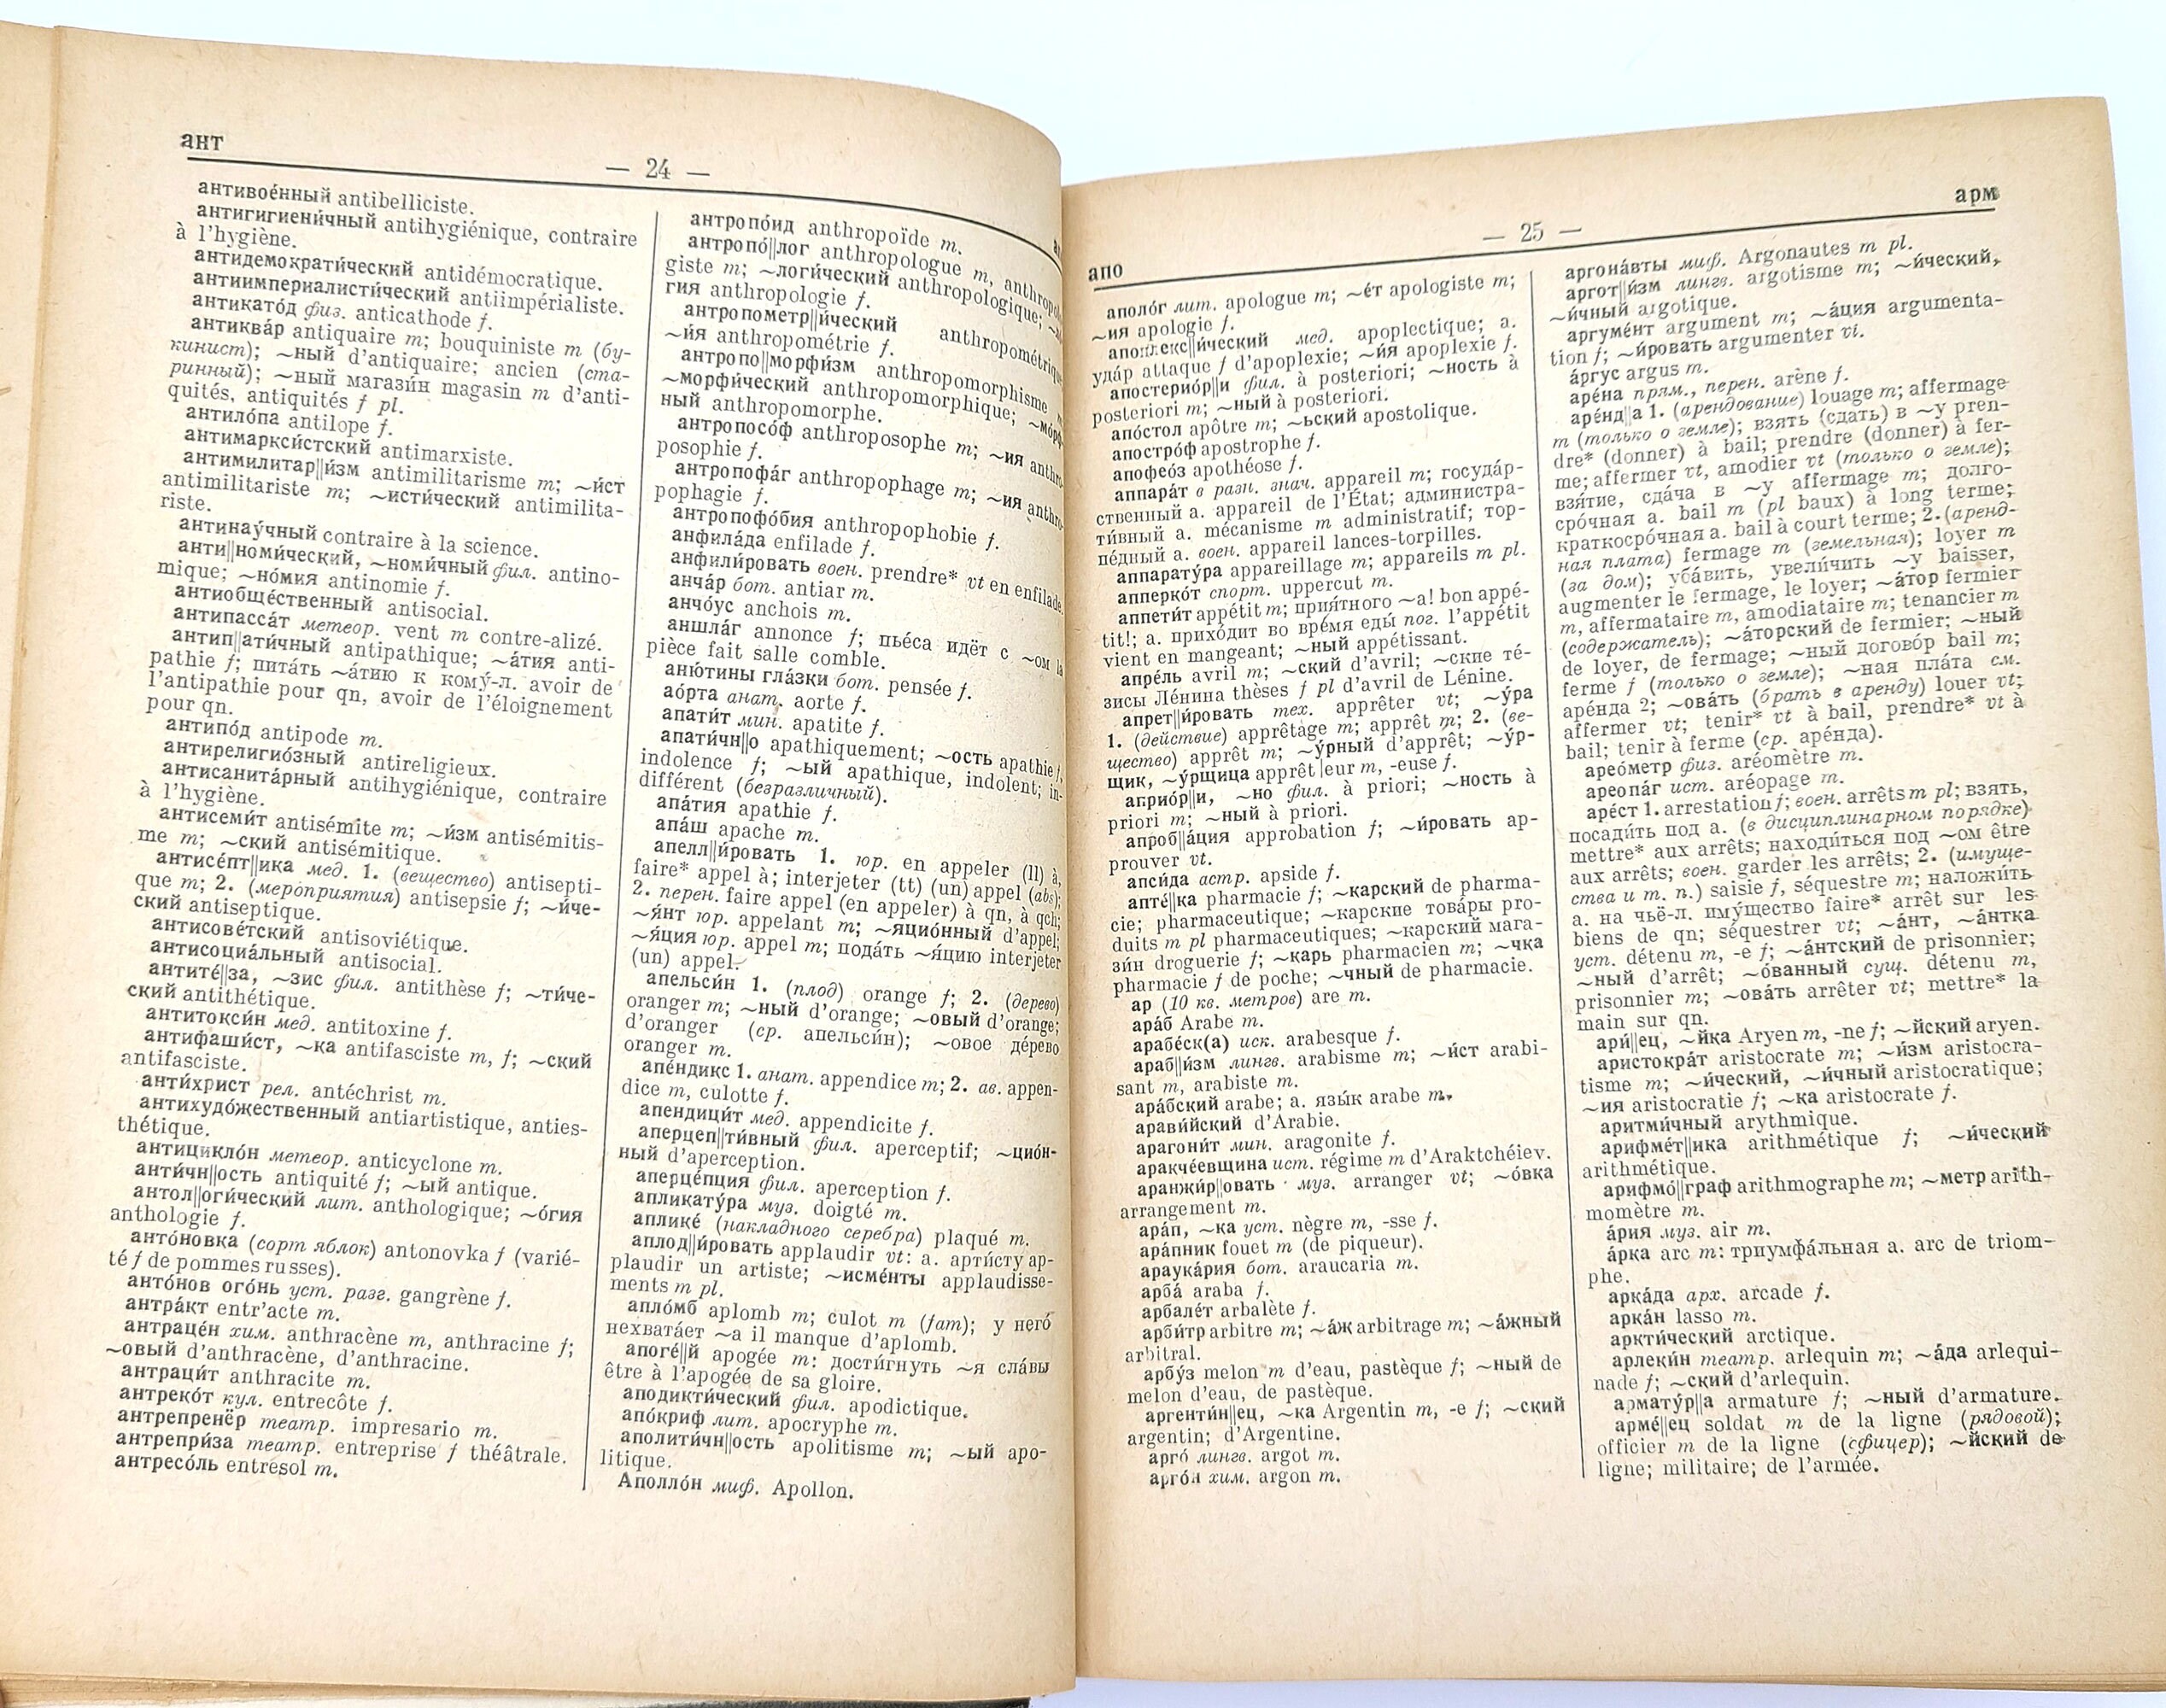 ант
— 24 —
антивое́нный antibelliciste.
антигигиени́чный antihygiénique, contraire
à l'hygiène.
антидемократи́ческий antidémocratique.
антиимпериалисти́ческий antiimpérialiste.
антикато́д физ. anticathode f.
антиква́р antiquaire m; bouquiniste m (бу-
кинист); ~ный d'antiquaire; ancien (ста-
ринный); ~ный магази́н magasin m d'anti-
quités, antiquités f pl.
антило́па antilope f.
антимаркси́стский antimarxiste.
антимилитар||и́зм antimilitarisme m; ~и́ст
antimilitariste m; ~исти́ческий antimilita-
riste.
антинау́чный contraire à la science.
анти||номи́ческий, ~номи́чный фил. antino-
mique; ~но́мия antinomie f.
антиобще́ственный antisocial.
антипасса́т метеор. vent m contre-alizé.
антип||ати́чный antipathique; ~а́тия anti-
pathie f; пита́ть ~а́тию к кому́-л. avoir de
l'antipathie pour qn, avoir de l'éloignement
pour qn.
антипо́д antipode m.
антирелигио́зный antireligieux.
антисанита́рный antihygiénique, contraire
à l'hygiène.
антисеми́т antisémite m; ~и́зм antisémitis-
me m; ~ский antisémitique.
антисе́пт||ика мед. 1. (вещество) antisepti-
que m; 2. (мероприятия) antisepsie f; ~и́че-
ский antiseptique.
антисове́тский antisoviétique.
антисоциа́льный antisocial.
антите́||за, ~зис фил. antithèse f; ~ти́че-
ский antithétique.
антитокси́н мед. antitoxine f.
антифаши́ст, ~ка antifasciste m, f; ~ский
antifasciste.
анти́христ рел. antéchrist m.
антихудо́жественный antiartistique, anties-
thétique.
антицикло́н метеор. anticyclone m.
анти́чн||ость antiquité f; ~ый antique.
антол||оги́ческий лит. anthologique; ~о́гия
anthologie f.
анто́новка (сорт яблок) antonovka f (varié-
té f de pommes russes).
анто́нов ого́нь уст. разг. gangrène f.
антра́кт entr'acte m.
антраце́н хим. anthracène m, anthracine f;
~овый d'anthracène, d'anthracine.
антраци́т anthracite m.
антреко́т кул. entrecôte f.
антрепренёр театр. impresario m.
антрепри́за театр. entreprise f théâtrale.
антресо́ль entresol m.
антропо́ид anthropoïde m.
антропо́||лог anthropologue m, anthropolo-
giste m; ~логи́ческий anthropologique;
гия anthropologie f.
антропометр||и́ческий anthropométrique
~и́я anthropométrie f.
антропо||морфи́зм anthropomorphisme
~морфи́ческий anthropomorphique; ~мо́рф-
ный anthropomorphe.
антропосо́ф anthroposophe m; ~ия anthro-
posophie f.
антропофа́г anthropophage m; ~ия anthro-
pophagie f.
антропофо́бия anthropophobie f.
анфила́да enfilade f.
анфили́ровать воен. prendre* vt en enfilade.
анча́р бот. antiar m.
анчо́ус anchois m.
аншла́г annonce f; пье́са идёт с ~ом la
pièce fait salle comble.
аню́тины гла́зки бот. pensée f.
ао́рта анат. aorte f.
апати́т мин. apatite f.
апати́чн||о apathiquement; ~ость apathie f,
indolence f; ~ый apathique, indolent; in-
différent (безразличный).
апа́тия apathie f.
апа́ш apache m.
апелл||и́ровать 1. юр. en appeler (ll) à,
faire* appel à; interjeter (tt) (un) appel (abs);
2. перен. faire appel (en appeler) à qn, à qch;
~я́нт юр. appelant m; ~яцио́нный d'appel;
~я́ция юр. appel m; пода́ть ~я́цию interjeter
(un) appel.
апельси́н 1. (плод) orange f; 2. (дерево)
oranger m; ~ный d'orange; ~овый d'orange;
d'oranger (ср. апельси́н); ~овое де́рево
oranger m.
апе́ндикс 1. анат. appendice m; 2. ав. appen-
dice m, culotte f.
апендици́т мед. appendicite f.
аперцеп||ти́вный фил. aperceptif; ~цио́н-
ный d'aperception.
аперце́пция фил. aperception f.
апликату́ра муз. doigté m.
аплике́ (накладного серебра) plaqué m.
аплод||и́ровать applaudir vt: а. арти́сту ap-
plaudir un artiste; ~исме́нты applaudisse-
ments m pl.
апло́мб aplomb m; culot m (fam); у него́
нехвата́ет ~а il manque d'aplomb.
апоге́||й apogée m: дости́гнуть ~я сла́вы
être à l'apogée de sa gloire.
аподикти́ческий фил. apodictique.
апо́криф лит. apocryphe m.
аполити́чн||ость apolitisme m; ~ый apo-
litique.
Аполло́н миф. Apollon.
апо
— 25 —
арм
аполо́г лит. apologue m; ~е́т apologiste m;
~ия apologie f.
апоплекс||и́ческий мед. apoplectique; а.
уда́р attaque f d'apoplexie; ~и́я apoplexie f.
апостерио́р||и фил. à posteriori; ~ность à
posteriori m; ~ный à posteriori.
апо́стол apôtre m; ~ьский apostolique.
апостро́ф apostrophe f.
апофео́з apothéose f.
аппара́т в разн. знач. appareil m; госуда́р-
ственный а. appareil de l'État; администра-
ти́вный а. mécanisme m administratif; тор-
пе́дный а. воен. appareil lances-torpilles.
аппарату́ра appareillage m; appareils m pl.
апперко́т спорт. uppercut m.
аппети́т appétit m; прия́тного ~а! bon appé-
tit!; а. прихо́дит во вре́мя еды́ пог. l'appétit
vient en mangeant; ~ный appétissant.
апре́ль avril m; ~ский d'avril; ~ские те́-
зисы Ле́нина thèses f pl d'avril de Lénine.
апрет||и́ровать тех. apprêter vt; ~у́ра
1. (действие) apprêtage m; apprêt m; 2. (ве-
щество) apprêt m; ~у́рный d'apprêt; ~у́р-
щик, ~у́рщица apprêt|eur m, -euse f.
априо́р||и, ~но фил. à priori; ~ность à
priori m; ~ный à priori.
апроб||а́ция approbation f; ~и́ровать ap-
prouver vt.
апси́да астр. apside f.
апте́||ка pharmacie f; ~карский de pharma-
cie; pharmaceutique; ~карские това́ры pro-
duits m pl pharmaceutiques; ~карский мага-
зи́н droguerie f; ~карь pharmacien m; ~чка
pharmacie f de poche; ~чный de pharmacie.
ар (10 кв. метров) are m.
ара́б Arabe m.
арабе́ск(а) иск. arabesque f.
араб||и́зм лингв. arabisme m; ~и́ст arabi-
sant m, arabiste m.
ара́бский arabe; а. язы́к arabe m.
арави́йский d'Arabie.
арагони́т мин. aragonite f.
аракче́евщина ист. régime m d'Araktchéiev.
аранжи́р||овать муз. arranger vt; ~о́вка
arrangement m.
ара́п, ~ка уст. nègre m, -sse f.
ара́пник fouet m (de piqueur).
араука́рия бот. araucaria m.
арба́ araba f.
арбале́т arbalète f.
арби́тр arbitre m; ~а́ж arbitrage m; ~а́жный
arbitral.
арбу́з melon m d'eau, pastèque f; ~ный de
melon d'eau, de pastèque.
аргенти́н||ец, ~ка Argentin m, -e f; ~ский
argentin; d'Argentine.
арго́ лингв. argot m.
арго́н хим. argon m.
аргона́вты миф. Argonautes m pl.
аргот||и́зм лингв. argotisme m; ~и́ческий,
~и́чный argotique.
аргуме́нт argument m; ~а́ция argumenta-
tion f; ~и́ровать argumenter vi.
а́ргус argus m.
аре́на прям., перен. arène f.
аре́нд||а 1. (арендование) louage m; affermage
m (только о земле); взять (сдать) в ~у pren-
dre* (donner) à bail; prendre (donner) à fer-
me; affermer vt, amodier vt (только о земле);
взя́тие, сда́ча в ~у affermage m; долго-
сро́чная а. bail m (pl baux) à long terme;
краткосро́чная а. bail à court terme; 2. (аренд-
ная плата) fermage m (земельная); loyer m
(за дом); уба́вить, увели́чить ~у baisser,
augmenter le fermage, le loyer; ~а́тор fermier
m, affermataire m, amodiataire m; tenancier m
(содержатель); ~а́торский de fermier; ~ный
de loyer, de fermage; ~ный догово́р bail m;
ferme f (только о земле); ~ная пла́та см.
аре́нда 2; ~ова́ть (брать в аренду) louer vt;
affermer vt; tenir* vt à bail, prendre* vt à
bail; tenir à ferme (ср. аре́нда).
арео́метр физ. aréomètre m.
ареопа́г ист. aréopage m.
аре́ст 1. arrestation f; воен. arrêts m pl; взять,
посади́ть под а. (в дисциплинарном порядке)
mettre* aux arrêts; находи́ться под ~ом être
aux arrêts; воен. garder les arrêts; 2. (имуще-
ства и т. п.) saisie f, séquestre m; наложи́ть
а. на чьё-л. иму́щество faire* arrêt sur les
biens de qn; séquestrer vt; ~а́нт, ~а́нтка
уст. détenu m, -e f; ~а́нтский de prisonnier;
~ный d'arrêt; ~о́ванный сущ. détenu m,
prisonnier m; ~ова́ть arrêter vt; mettre* la
main sur qn.
ари́||ец, ~йка Aryen m, -ne f; ~йский aryen.
аристокра́т aristocrate m; ~и́зм aristocra-
tisme m; ~и́ческий, ~и́чный aristocratique;
~ия aristocratie f; ~ка aristocrate f.
аритми́чный arythmique.
арифме́т||ика arithmétique f; ~и́ческий
arithmétique.
арифмо́||граф arithmographe m; ~метр arith-
momètre m.
а́рия муз. air m.
а́рка arc m: триумфа́льная а. arc de triom-
phe.
арка́да арх. arcade f.
арка́н lasso m.
аркти́ческий arctique.
арлеки́н театр. arlequin m; ~а́да arlequi-
nade f; ~ский d'arlequin.
армату́р||а armature f; ~ный d'armature.
арме́||ец soldat m de la ligne (рядовой);
officier m de la ligne (офицер); ~йский de
ligne; militaire; de l'armée.